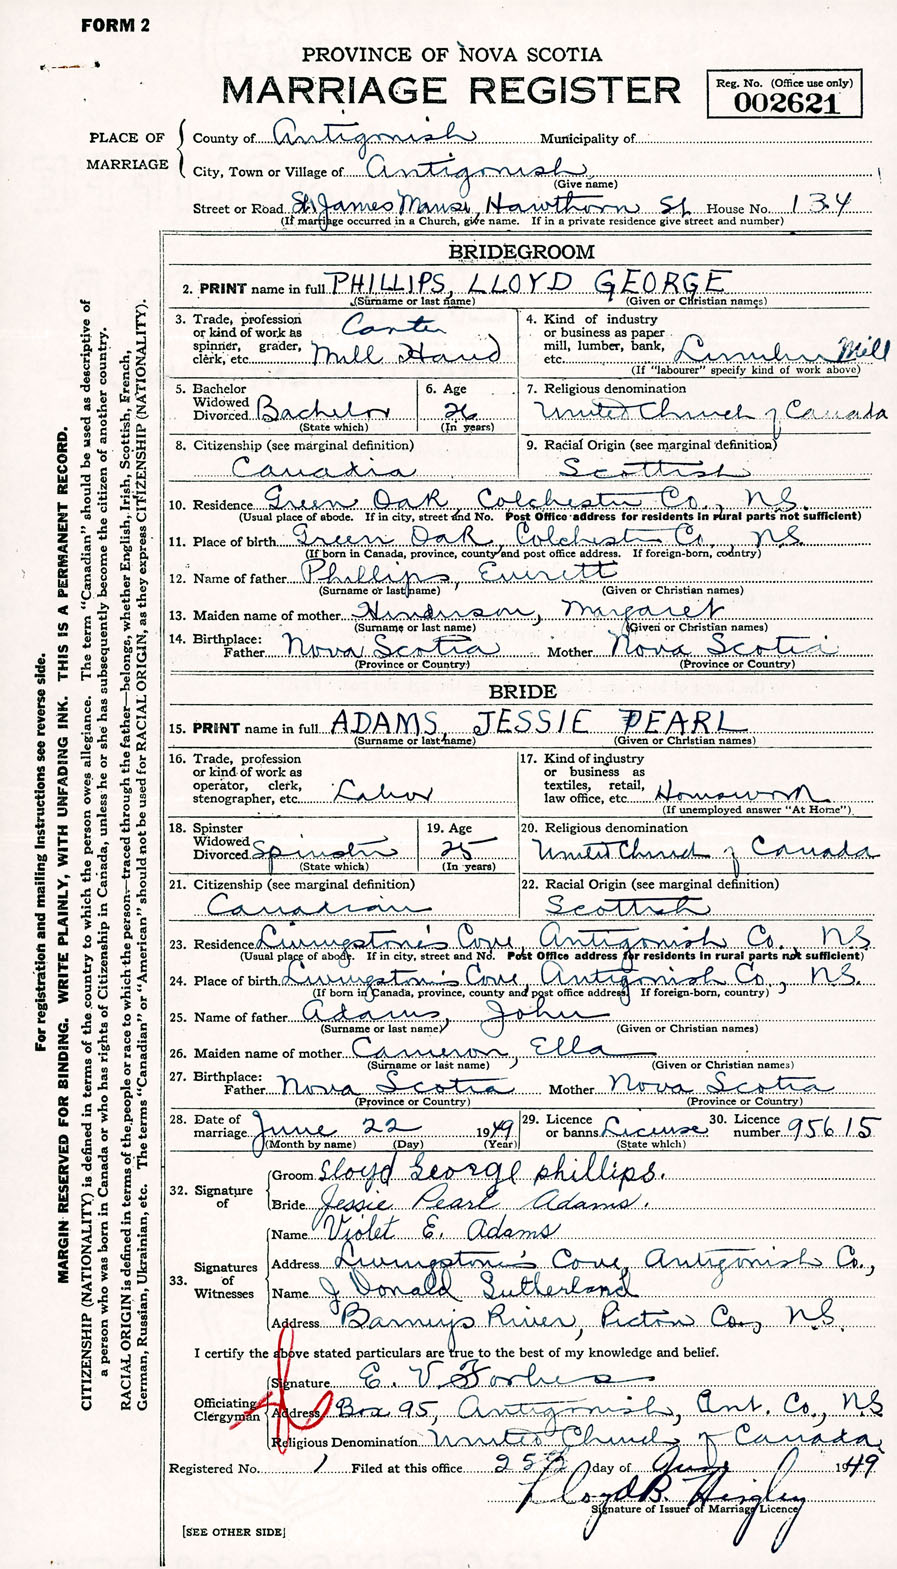 FORM 2
PROVINCE OF NOVA SCOTIA
MARRIAGE REGISTER
Reg. No. (Office use only)
002621
PLACE OF MARRIAGE
County of Antigonish Municipality of
City, Town or Village of Antigonish
(Give name)
Street or Road St. James Manse, Hawthorn St. House No. 134
(If marriage occurred in a Church, give name. If in a private residence give street and number)
BRIDEGROOM
2. PRINT name in full PHILLIPS, LLOYD GEORGE
(Surname or last name) (Given or Christian names)
3. Trade, profession or kind of work as spinner, grader, clerk, etc. Mill Hand
4. Kind of industry or business as paper mill, lumber, bank, etc. Lumber Mill
(If "labourer" specify kind of work above)
5. Bachelor Widowed Divorced Bachelor
(State which)
6. Age 26
(In years)
7. Religious denomination
United Church of Canada
8. Citizenship (see marginal definition)
Canadia
9. Racial Origin (see marginal definition)
Scottish
10. Residence Green Oak, Colchester Co., N.S.
(Usual place of abode. If in city, street and No. Post Office address for residents in rural parts not sufficient)
11. Place of birth Green Oak, Colchester Co., N.S.
(If born in Canada, province, county and post office address. If foreign-born, country)
12. Name of father Phillips, Everett
(Surname or last name) (Given or Christian names)
13. Maiden name of mother Henderson, Margaret
(Surname or last name) (Given or Christian names)
14. Birthplace: Father Nova Scotia Mother Nova Scotia
(Province or Country) (Province or Country)
BRIDE
15. PRINT name in full ADAMS, JESSIE PEARL
(Surname or last name) (Given or Christian names)
16. Trade, profession or kind of work as operator, clerk, stenographer, etc. Labor
17. Kind of industry or business as textiles, retail, law office, etc. Housework
(If unemployed answer "At Home")
18. Spinster Widowed Divorced Spinster
(State which)
19. Age 25
(In years)
20. Religious denomination
United Church of Canada
21. Citizenship (see marginal definition)
Canadian
22. Racial Origin (see marginal definition)
Scottish
23. Residence Livingstone's Cove, Antigonish Co., N.S.
(Usual place of abode. If in city, street and No. Post Office address for residents in rural parts not sufficient)
24. Place of birth Livingston's Cove, Antigonish Co., N.S.
(If born in Canada, province, county and post office address. If foreign-born, country)
25. Name of father Adams, John
(Surname or last name) (Given or Christian names)
26. Maiden name of mother Cameron, Ella
(Surname or last name) (Given or Christian names)
27. Birthplace: Father Nova Scotia Mother Nova Scotia
(Province or Country) (Province or Country)
28. Date of marriage June 22 1949
(Month by name) (Day) (Year)
29. Licence or banns License
(State which)
30. Licence number 95615
32. Signature of
Groom Lloyd George phillips.
Bride Jessie Pearl Adams.
33. Signatures of Witnesses
Name Violet E. Adams
Address Livingstone's Cove, Antigonish Co.,
Name J Donald Sutherland
Address Barney's River, Pictou Co., N.S.
I certify the above stated particulars are true to the best of my knowledge and belief.
Officiating Clergyman
Signature E. V. Forbes
Address Box 95, Antigonish, Ant. Co., NS
Religious Denomination United Church of Canada
Registered No. Filed at this office 25th day of June 1949
Lloyd B. Higley
Signature of Issuer of Marriage Licence
[SEE OTHER SIDE]
For registration and mailing Instructions see reverse side.
MARGIN RESERVED FOR BINDING. WRITE PLAINLY, WITH UNFADING INK. THIS IS A PERMANENT RECORD.
CITIZENSHIP (NATIONALITY) is defined in terms of the country to which the person owes allegiance. The term "Canadian" should be used as descriptive of
a person who was born in Canada or who has rights of Citizenship in Canada, unless he or she has subsequently become the citizen of another country.
RACIAL ORIGIN is defined in terms of the people or race to which the person—traced through the father—belongs, whether English, Irish, Scottish, French,
German, Russian, Ukrainian, etc. The terms "Canadian" or "American" should not be used for RACIAL ORIGIN, as they express CITIZENSHIP (NATIONALITY).